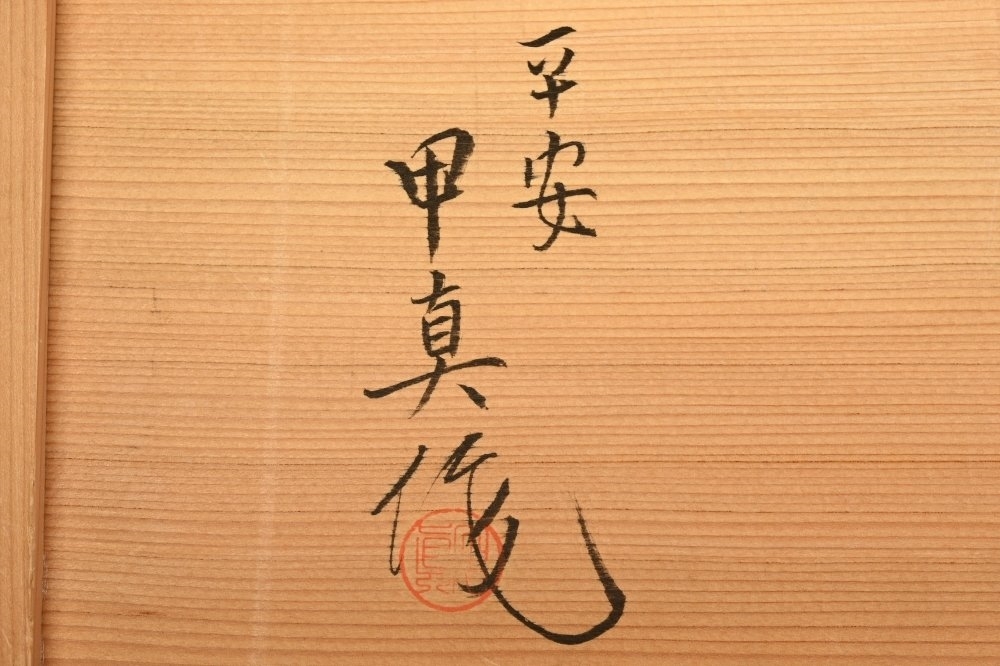 平安
甲真作